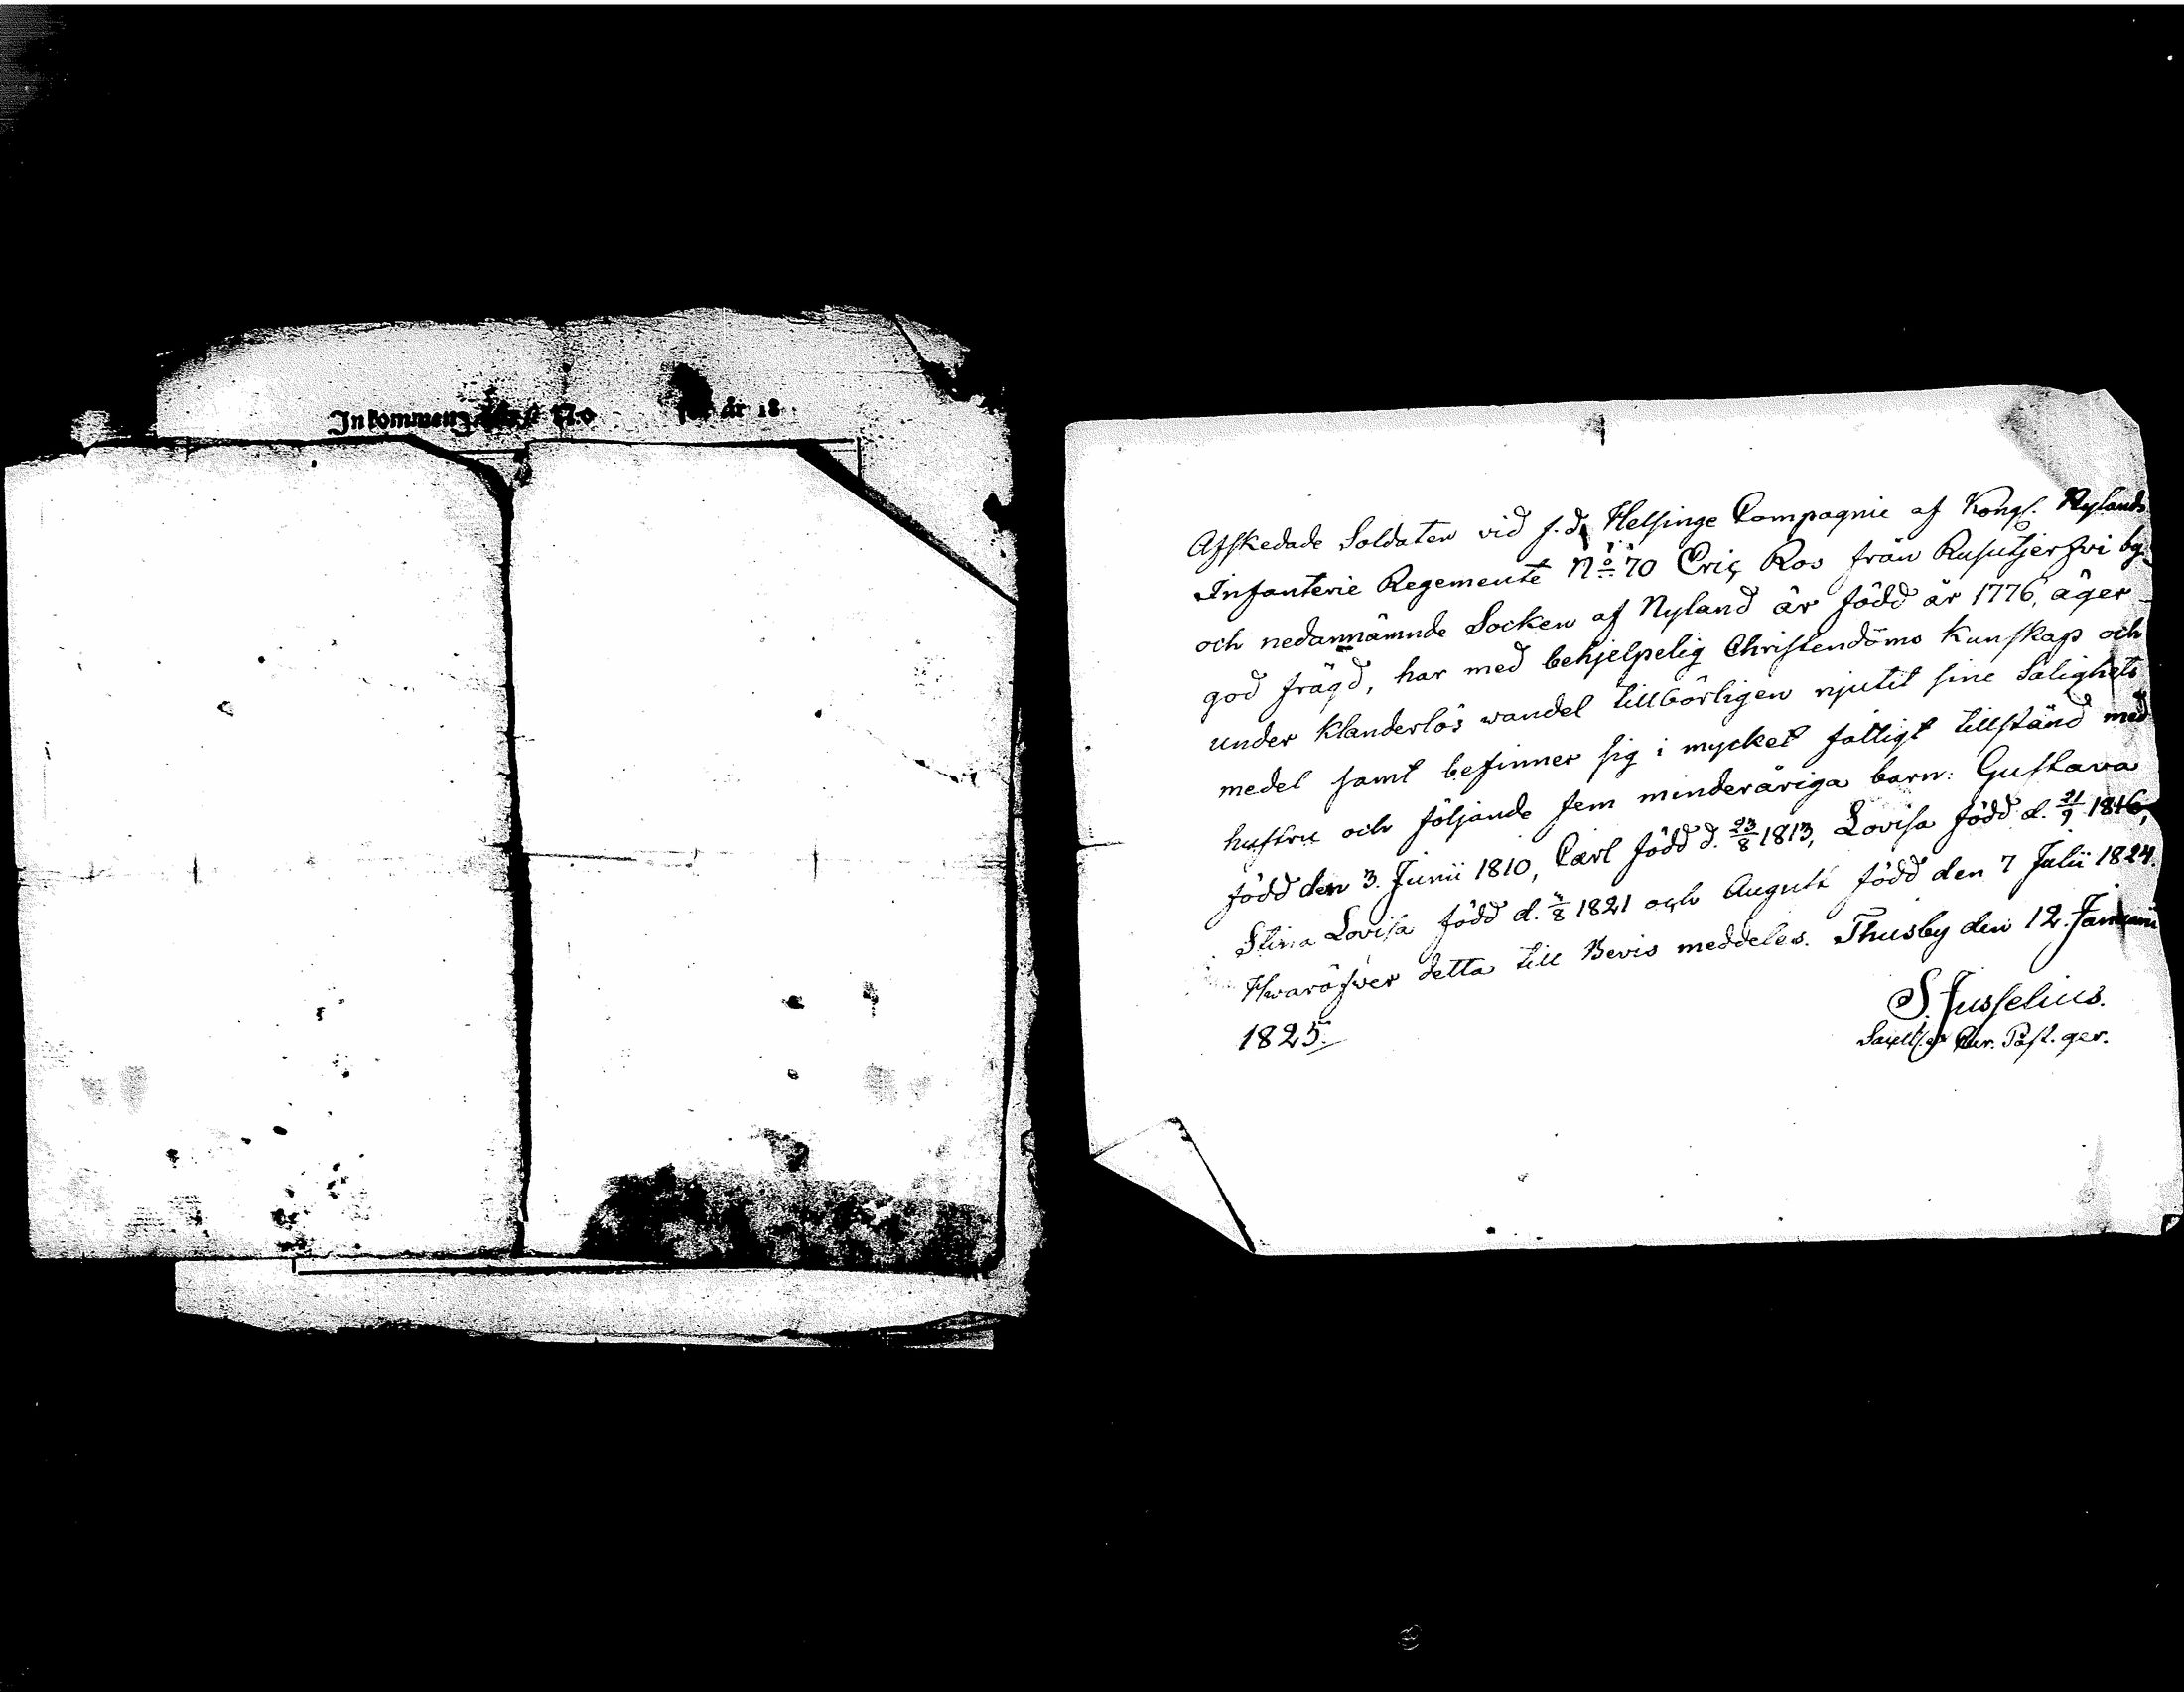 Inkommen N:o för år 18
Afskedade Soldaten vid f.d. Helsinge Compagnie af Kongl. Nylands
Infanterie Regemente No 70 Eric Ros från Rusutjerfvi by
och nedannämnde Socken af Nyland är född år 1776, äger
god frägd, har med behjelpelig Christendoms Kunskap och
under klanderlös wandel tillbörligen njutit sine Salighets
medel samt befinner sig i mycket fattigt tillstånd med
hustru och följande fem minderåriga barn: Gustava
född den 3. Junii 1810, Carl född d. 23/8 1813, Lovisa född d. 21/9 1816,
Stina Lovisa född d. /8 1821 och August född den 7 Julii 1824.
Hwaröfver detta till Bevis meddeles. Thusby den 12. Januarii
1825.
S. Jusselius.
Past. ger.